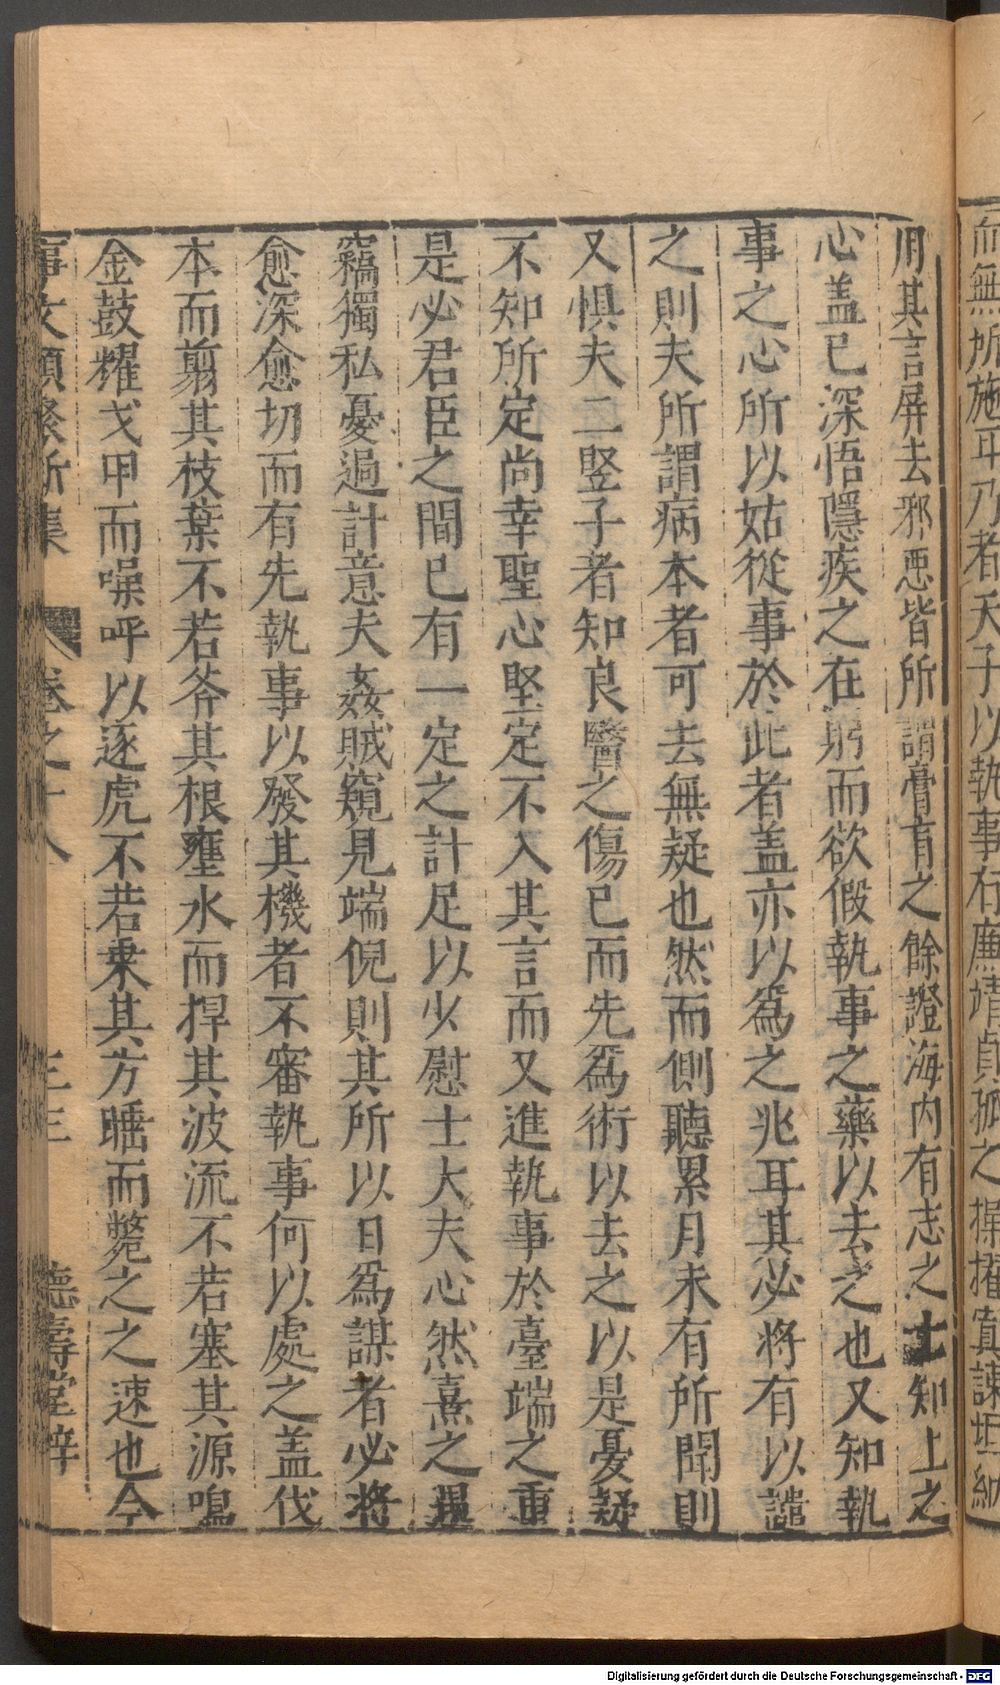 而無所施耳乃者天子以執事石廉靖貞孤之操擢寘諫垣納
用其言屏去邪惡皆所謂膏肓之餘證海內有志之士知上之
心盖已深悟隱疾之在躬而欲假執事之藥以去之也又知執
事之心所以姑從事於此者盖亦以爲之兆耳其必將有以譴
之則夫所謂病本者可去無疑也然而側聽累月未有所聞則
又懼夫二竪子者知良醫之傷已而先爲術以去之以是憂疑
不知所定尚幸聖心堅定不入其言而又進執事於臺端之重
是必君臣之間已有一定之計足以少慰士大夫心然熹之愚
竊獨私憂過計意夫姦賊窺見端倪則其所以日爲謀者必將
愈深愈切而有先執事以發其機者不審執事何以處之盖伐
本而剪其枝葉不若斧其根壅水而捍其波流不若塞其源鳴
金鼓耀戈甲而噪呼以逐虎不若乘其方睡而斃之之速也今
事文類聚新集 卷之十八 三三 德壽堂梓
Digitalisierung gefördert durch die Deutsche Forschungsgemeinschaft - DFG